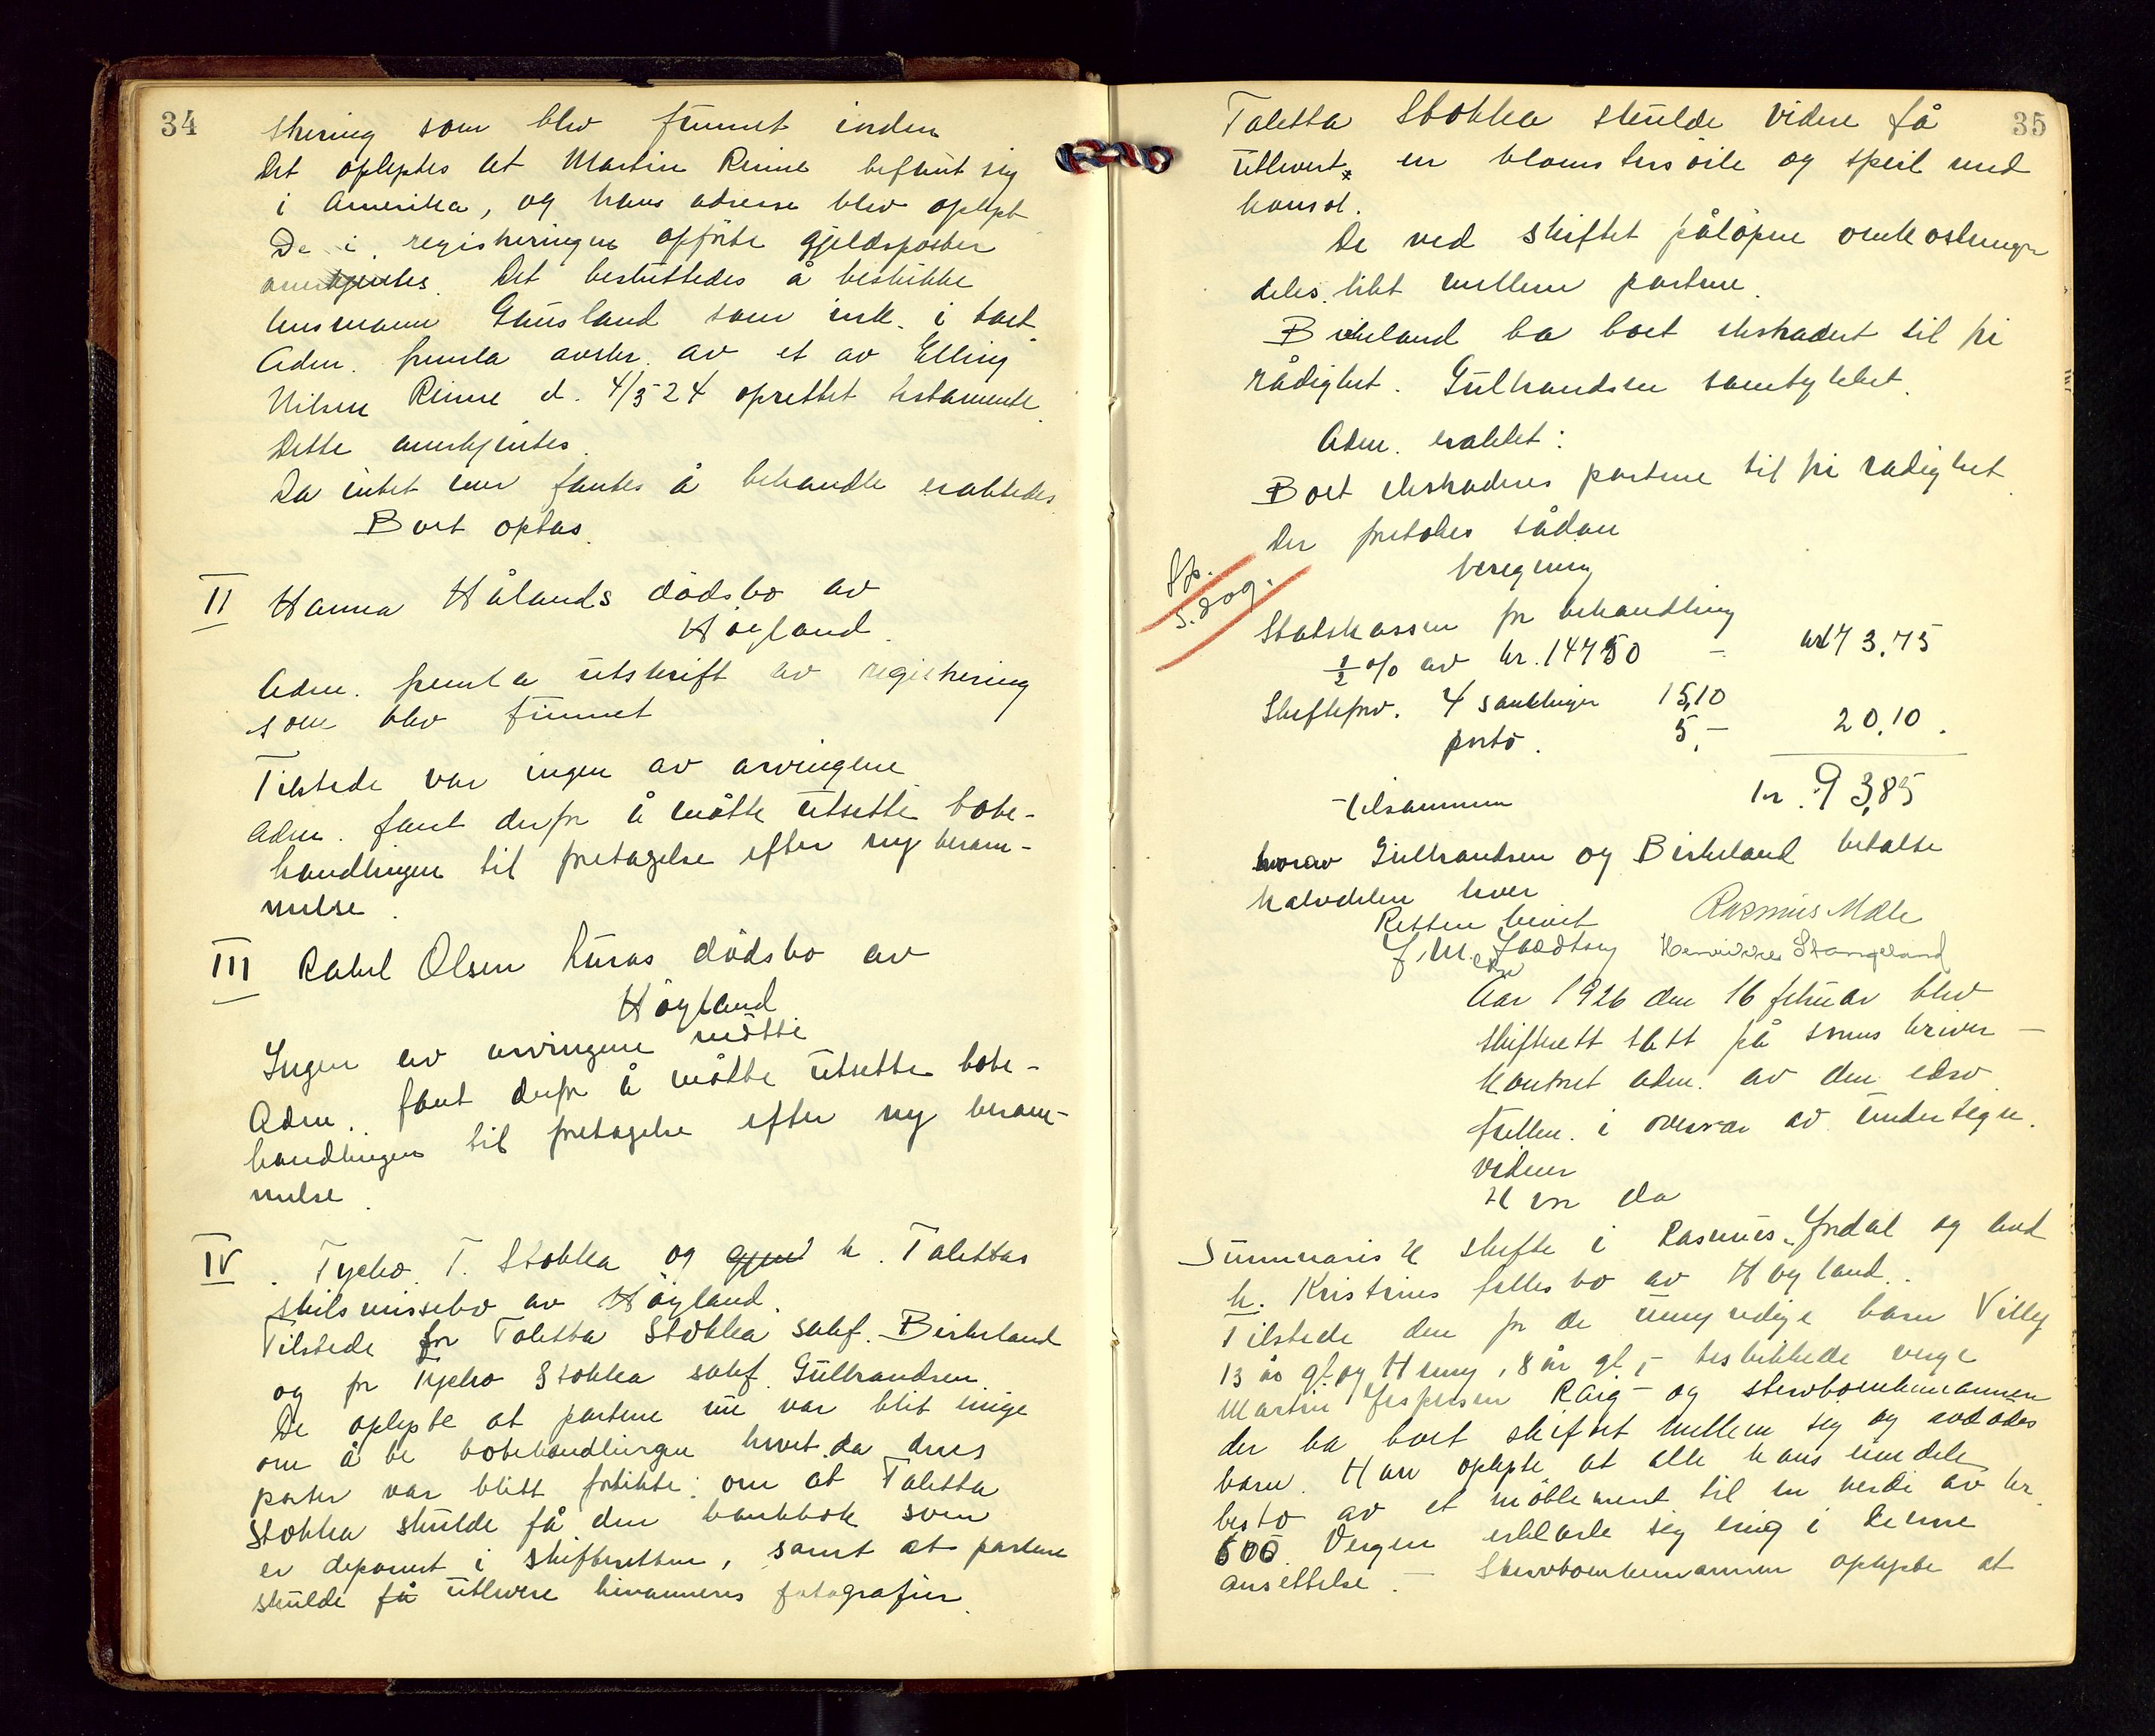 34
skering som blev funnet inden
Det oplyptes at Martin Rinne befant sig
i Amerika, og hans adresse blev oplypt
De i registreringen opførte gjeldsposter
anerkjentes. Det besluttedes å beskikke
lensmann Gausland som ink. i boet
Adm. fremla avskr. av et av Elling
Nilsen Rinne d. 4/5 24 oprettet testamente.
Dette anerkjentes.
Da intet mer fantes å behandle eraktedes
Boet optas.
II Hanna Hålands dödsbo av
Höyland.
Adm. fremla utskrift av registrering
som blev funnet
Tilstede var ingen av arvingene
Adm. fant derfor å måtte utsette bobe-
handlingen til foretagelse efter ny beram-
melse.
III Rakel Olsen Luras dödsbo av
Höyland
Ingen av arvingene mötte
Adm. fant derfor å måtte utsette bobe-
handlingen til foretagelse efter ny beram-
melse.
IV. Tycho T. Stokka og h. Talettas
skilsmissebo av Höyland.
Tilstede for Taletta Stokka sakf. Birkeland
og for Tycho Stokka sakf. Gulbrandsen.
De oplyste at partene nu var blit enige
om å be bobehandlingen hevet da dens
poster var blitt forlikte: om at Taletta
Stokka skulde få den bankbok som
er deponert i skifteretten, samt at partene
skulde få utlevere hinannens fotografier.
35
Taletta Stokka skulde videre få
utlevert en blomstersöile og speil med
konsol.
De ved skiftet påløpne omkostninger
deles likt mellem partene.
Birkeland ba boet ekstradert til fri
rådighet. Gulbrandsen samtykket.
Adm. eraktet:
Boet ekstraderes partene til fri rådighet.
Der foretokes sådan
beregning
Statskassen for behandling
½ o/o av kr. 14750 - kr 73,75
Skiftefov. 4 samlinger 15,10
porto. 5,- 20,10.
tilsammen kr. 93,85
hvorav Gulbrandsen og Birkeland betalte
halvdelen hver
Retten hevet Rasmus Mæle
Stangeland
Aar 1926 den 16 februar blev
skifterett satt på sorenskriver-
kontoret adm. av den edsv.
fullm. i overvær av undertegn.
vidner
Hvor da
Summarisk skifte i Rasmus Ørdal og avd
h. Kristines fellesbo av Høyland.
Tilstede den for de umyndige barn Villy
13 år gl. og Henny, 8 år gl, - beskikkede verge
Martin Jespersen Raig - og sterbbomkemannen
der ba boet skiftet mellem sig og avdødes
barn. Han oplyste at alle hans eiendele
besto av et möblement til en verdi av kr.
600. Vergen erklærte sig enig i denne
ansettelse. - Stervboenkemannen oplyste at